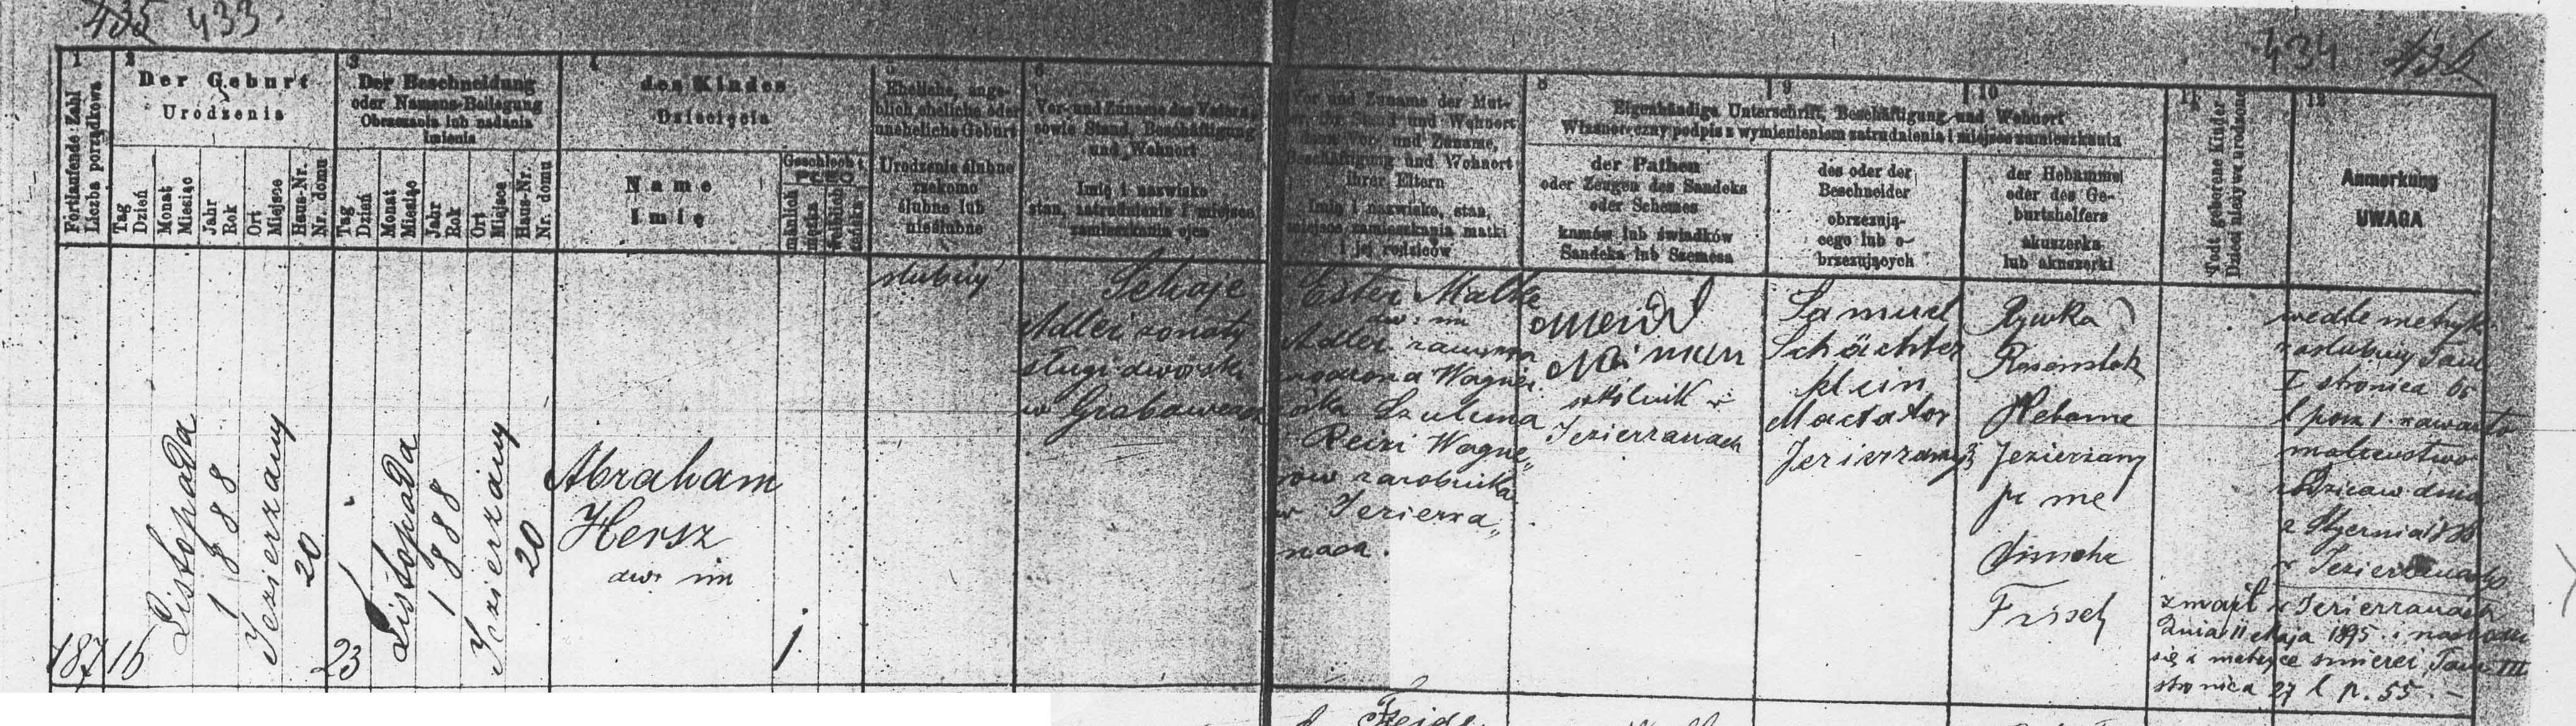 435 433
434 436
1
Fortlaufende Zahl
Liczba porządkowa
2
Der Geburt
Urodzenia
Tag
Dzień
Monat
Miesiąc
Jahr
Rok
Ort
Miejsce
Haus-Nr.
Nr. domu
3
Der Beschneidung
oder Namens-Beilegung
Obrzezania lub nadania
imienia
Tag
Dzień
Monat
Miesiąc
Jahr
Rok
Ort
Miejsce
Haus-Nr.
Nr. domu
4
des Kindes
Dziecięcia
Name
Imię
Geschlecht
Płeć
männlich
męska
weiblich
żeńska
5
Eheliche, ange-
blich eheliche oder
uneheliche Geburt
Urodzenie ślubne
rzekomo
ślubne lub
nieślubne
6
Vor- und Zuname des Vaters,
sowie Stand, Beschäftigung
und Wohnort
Imię i nazwisko
stan, zatrudnienie i miejsce
zamieszkania ojca
Vor und Zuname der Mut-
und Wohnort
vor- und Zuname,
Beschäftigung und Wohnort
ihrer Eltern
Imię i nazwisko, stan,
miejsce zamieszkania matki
i jej rodziców
8
9
10
Eigenhändige Unterschrift, Beschäftigung und Wohnort
Własnoręczny podpis z wymienieniem zatrudnienia i miejsca zamieszkania
der Pathen
oder Zeugen des Sandeks
oder Schemes
kumów lub świadków
Sandeka lub Szemesa
des oder der
Beschneider
obrzezują-
cego lub o-
brzezujących
der Hebamme
oder des Ge-
burtshelfers
akuszerka
lub akuszerki
11
Todt geborene Kinder
Dzieci nieżywo urodzone
12
Anmerkung
UWAGA
187
16
Listopada
1888
Jezierzany
20
23
Listopada
1888
Jezierzany
20
Abraham
Hersz
dw. im
1
ślubny
Schaje
Adler żonaty
sługi dworski
w
Ester Malke
dw. im
Adler zamężna
Wagner
córka Szulima
Reizi Wagne„
rów zarobnika
w Jezierza„
nach.
szkolnik w
Jezierzanach
Samuel
Schächter
klein
Mactator
Jezierzany
Rywka
Hebame
Jezierzany
pr me
Simche
Frisch
wedle metryk
zaślubin Tom
I stronica 65
l porz 1. zawarto
małżeństwo
rodziców dnia
2
w Jezierzanach
zmarł w Jezierzanach
dnia 11 Maja 1895. i
się w metryce śmierci, Tom III
stronica 27 l p. 55. —